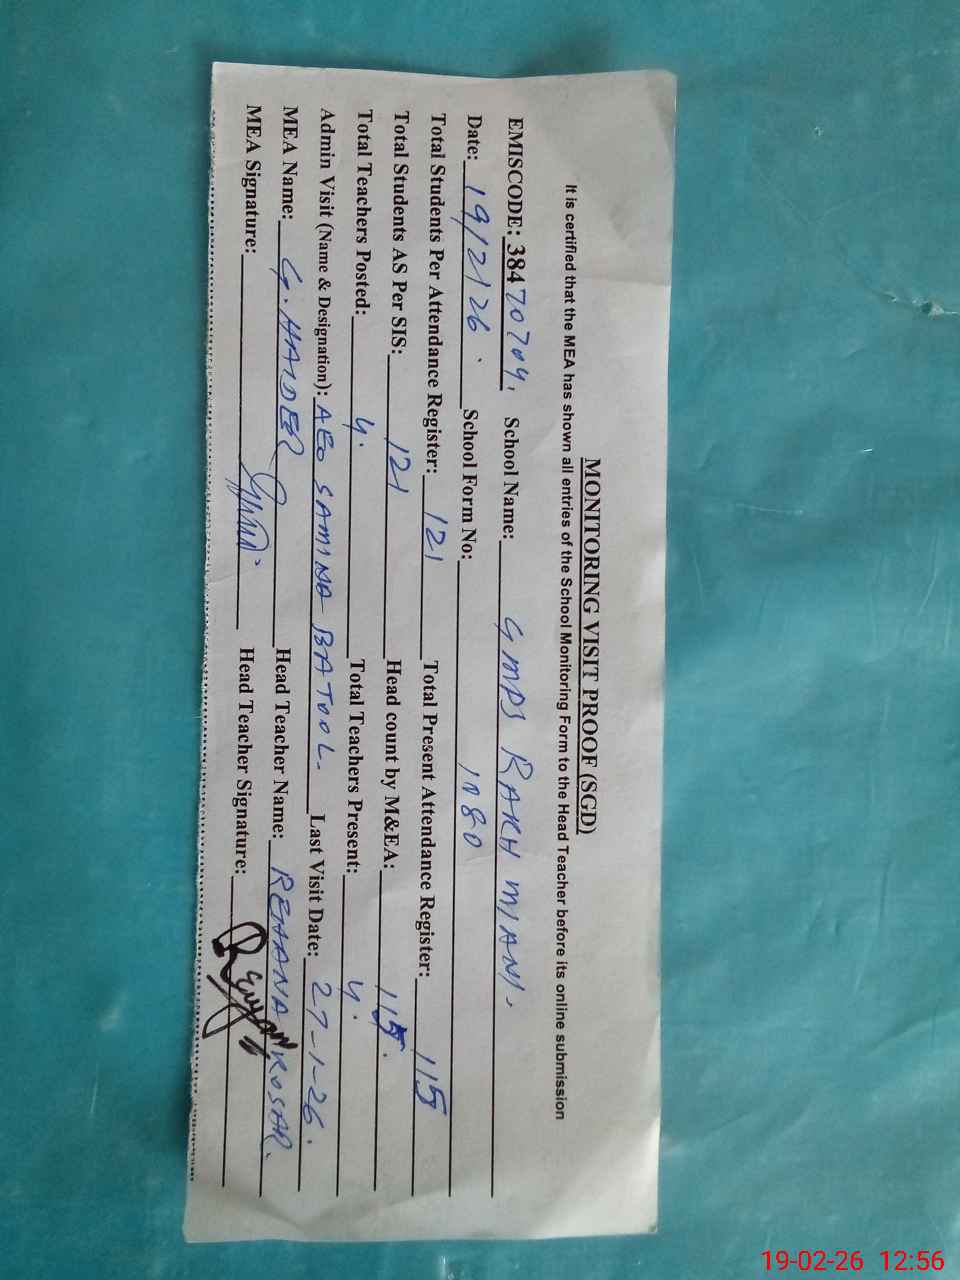 MONITORING VISIT PROOF (SGD)
It is certified that the MEA has shown all entries of the School Monitoring Form to the Head Teacher before its online submission
EMISCODE: 38470709. School Name: GMPS RAKH MIANI.
Date: 19/2/26. School Form No: 1080
Total Students Per Attendance Register: 121 Total Present Attendance Register: 115
Total Students AS Per SIS: 121 Head count by M&EA: 115.
Total Teachers Posted: 4. Total Teachers Present: 4.
Admin Visit (Name & Designation): AEO SAMINA BATOOL. Last Visit Date: 27-1-26.
MEA Name: G. HAIDER Head Teacher Name: REHANA KOSAR.
MEA Signature: Head Teacher Signature:
19-02-26 12:56